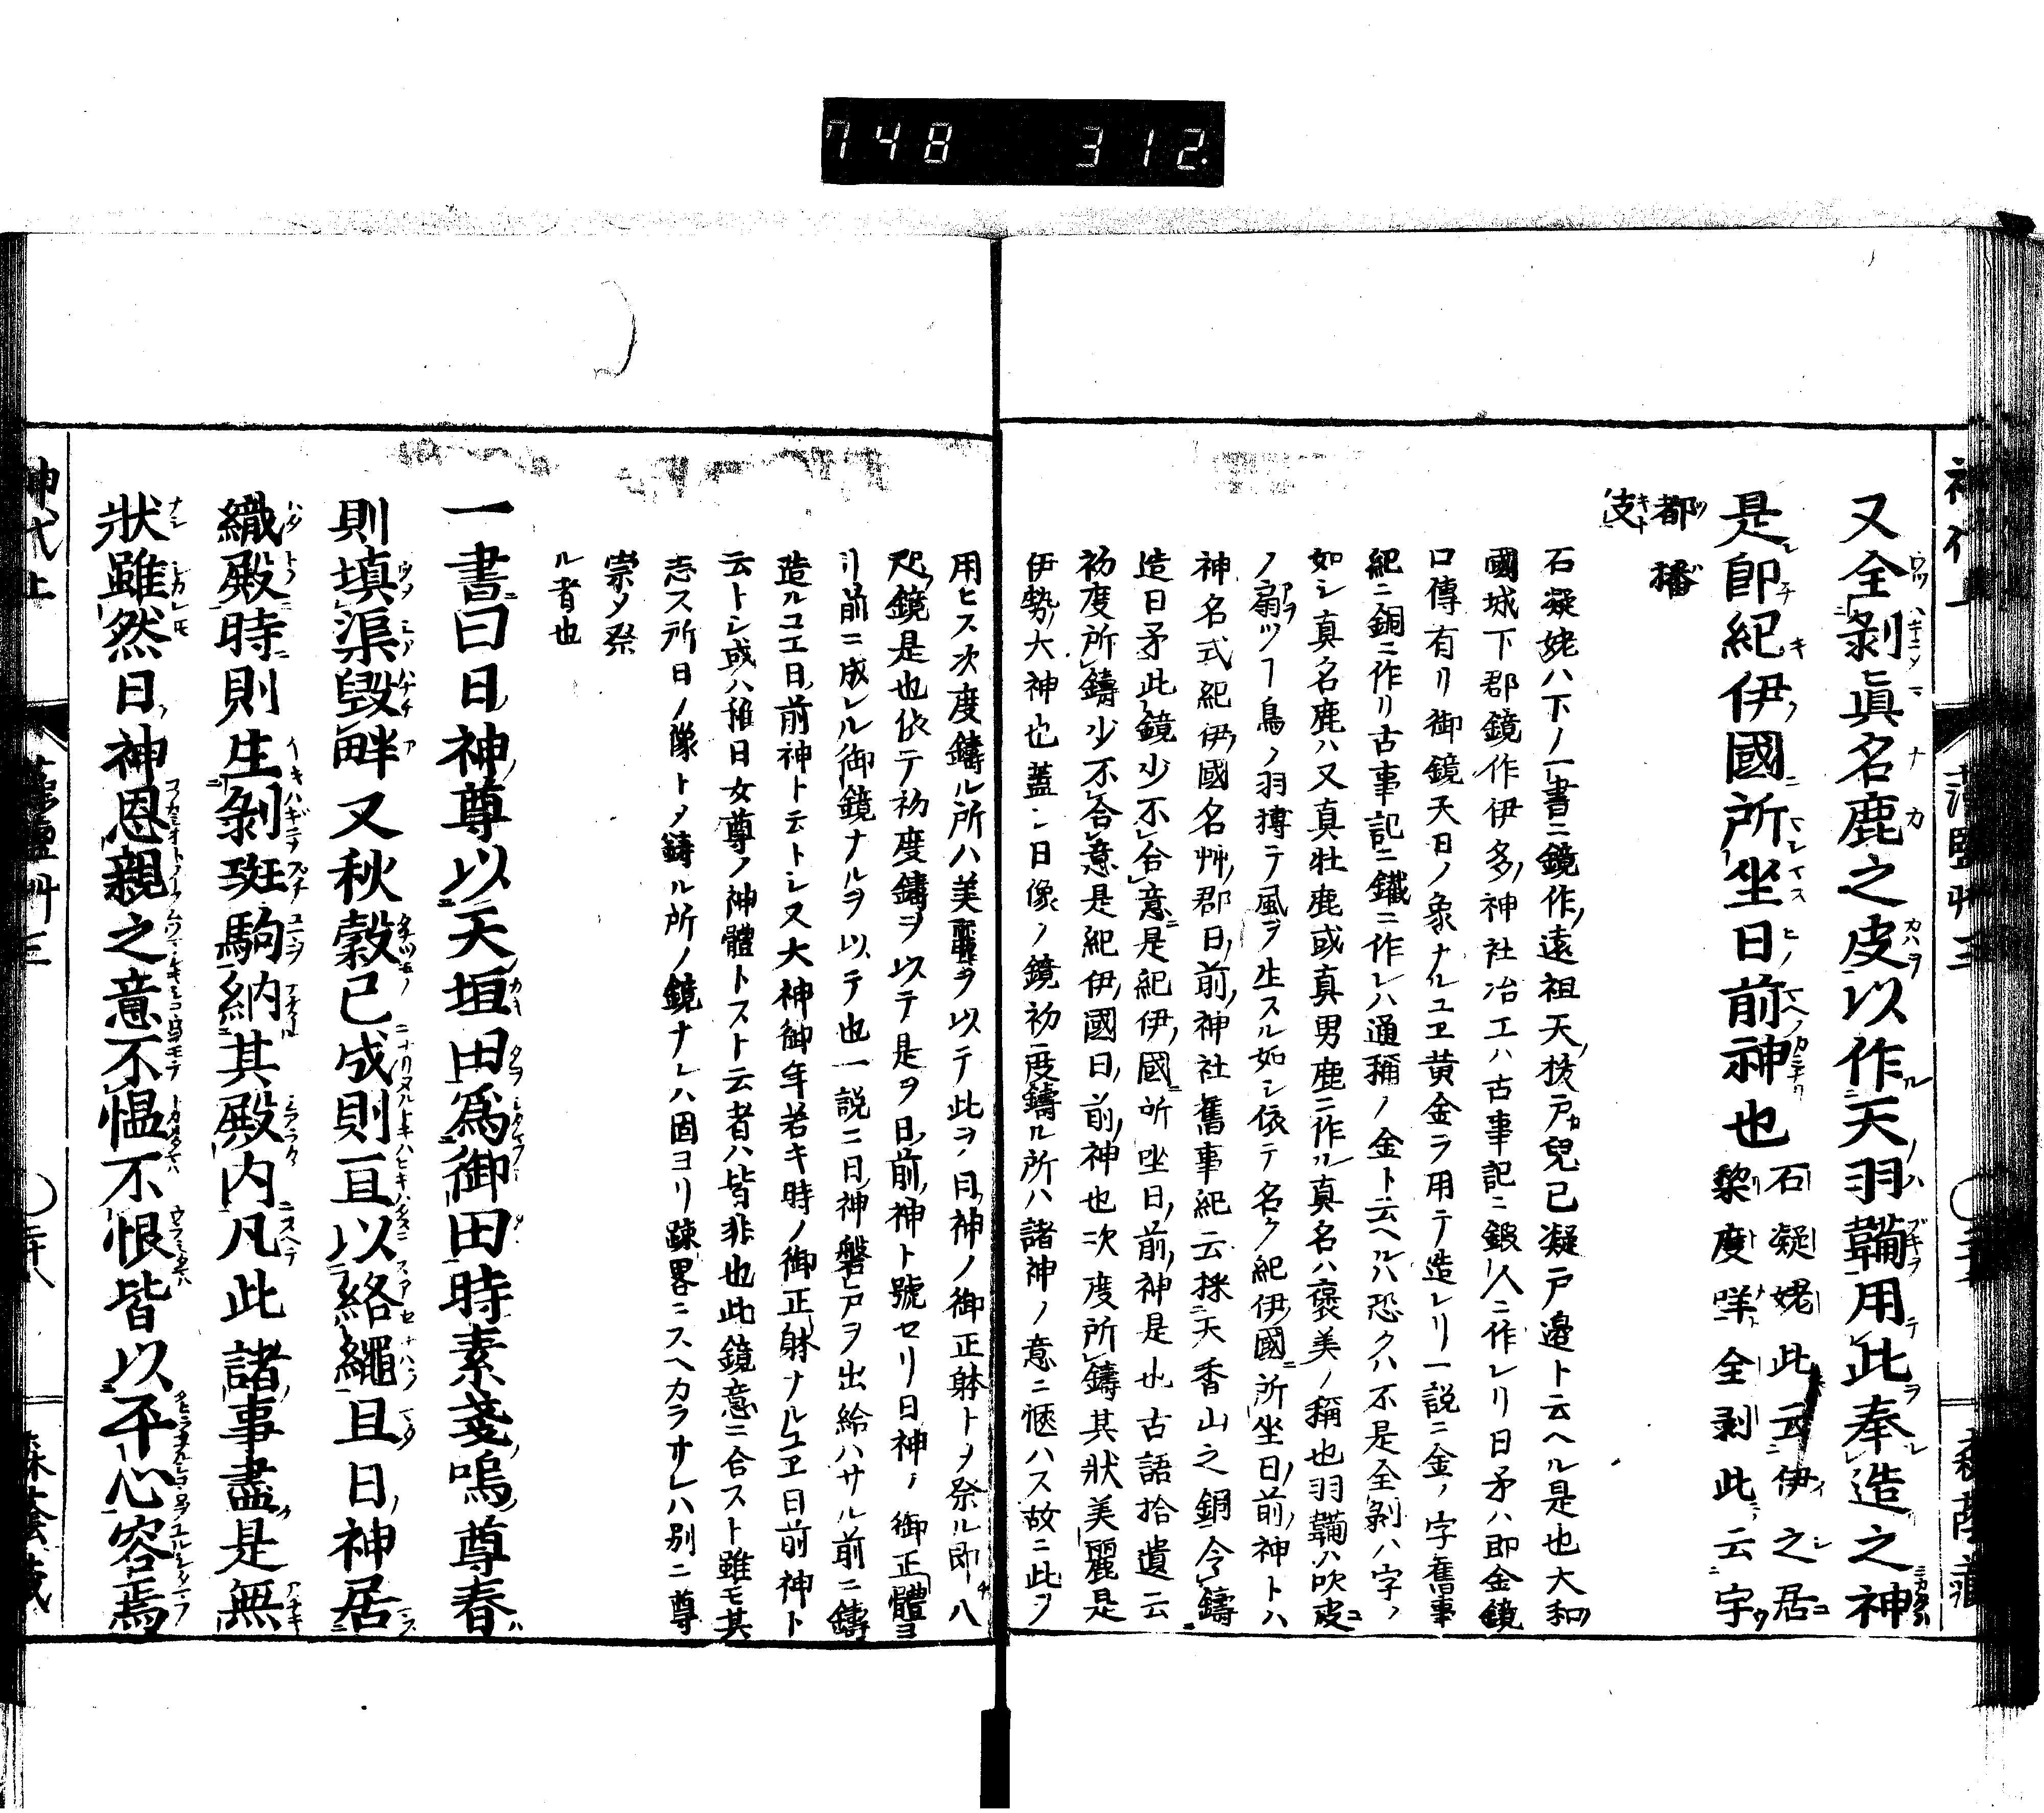 748 312.
又全剝眞名鹿之皮以作天羽韛用此奉造之神
是卽紀伊國所坐日前神也石凝姥此云伊之居
梨度咩全剥此云宇
都播
伎
石凝姥ハ下ノ一書ニ鏡作遠祖天抜戸兒已凝戸邉ト云ヘル是也大和
國城下郡鏡作伊多神社冶工ハ古事記ニ鍛人ニ作レリ日矛ハ即金鏡
口傳有リ御鏡天日ノ象ナルユヱ黄金ヲ用テ造レリ一説ニ金ノ字舊事
紀ニ銅ニ作リ古事記ニ鐵ニ作レハ通稱ノ金ト云ヘルハ恐クハ不是全剝ハ字ノ
如シ真名鹿ハ又真牡鹿或真男鹿ニ作ル真名ハ褒美ノ稱也羽韛ハ吹皮
ノ扇ツ丁鳥ノ羽摶テ風ヲ生スル如シ依テ名ク紀伊國所坐日前神トハ
神名式紀伊國名艸郡日前神社舊事紀云採天香山之銅令鑄
造日矛此鏡少不合意是紀伊國所坐日前神是也古語拾遺云
初度所鑄少不合意是紀伊國日前神也次度所鑄其狀美麗是
伊勢大神也蓋シ日像ノ鏡初度鑄ル所ハ諸神ノ意ニ愜ハス故ニ此ヲ
用ヒス次度鑄ル所ハ美麗ヲ以テ此ヲ日神ノ御正躰トメ祭ル即八
咫鏡是也依テ初度鑄ヲ以テ是ヲ日前神ト號セリ日神ノ御正體ヨ
リ前ニ成レル御鏡ナルヲ以テ也一説ニ日神磐戸ヲ出給ハサル前ニ鑄
造ルユエ日前神ト云トシ又大神御年若キ時ノ御正躰ナルユヱ日前神ト
云トシ或ハ稚日女尊ノ神體トスト云者ハ皆非也此鏡意ニ合スト雖モ其
志ス所日ノ像トメ鋳ル所ノ鏡ナレハ固ヨリ疎畧ニスヘカラサレハ別ニ尊
崇メ祭
ル者也
一書曰日神尊以天垣田爲御田時素戔嗚尊春
則塡渠毀畔又秋穀已成則亘以絡繩且日神居
織殿時則生剝斑駒納其殿内凡此諸事盡是無
狀雖然日神恩親之意不慍不恨皆以平心容焉
神代上